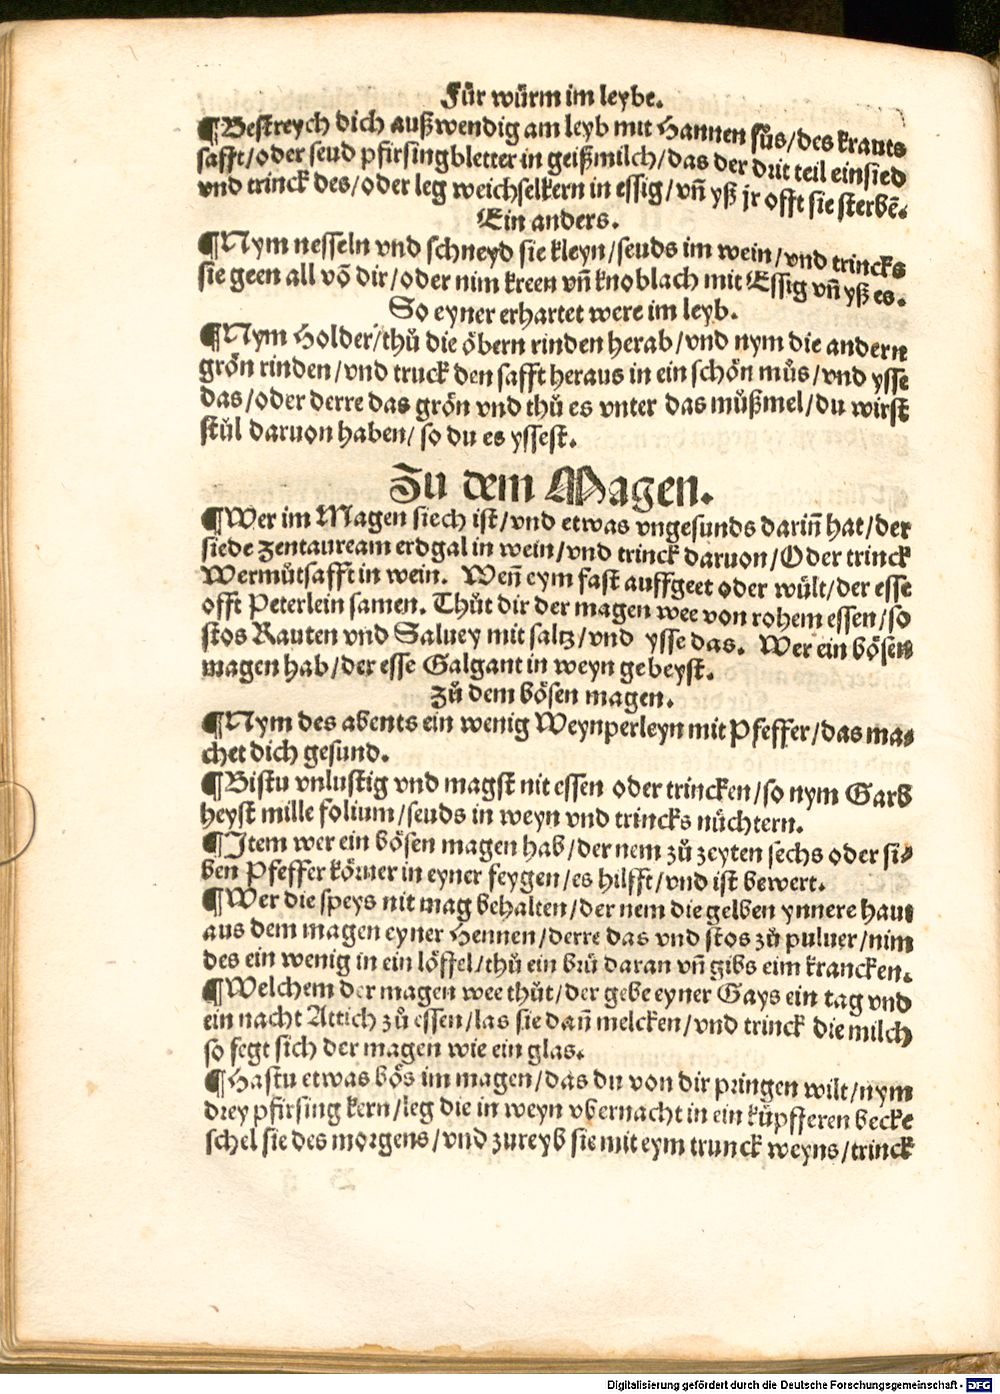 Für würm im leybe.
¶Bestreych dich außwendig am leyb mit Hannen füs/des krauts
safft/oder seud pfirsingbletter in geißmilch/das der drit teil einsied
vnd trinck des/oder leg weichselkern in essig/vñ yß jr offt sie sterbẽ.
Ein anders.
¶Nym nesseln vnd schneyd sie kleyn/seuds im wein/vnd trincks
sie geen all võ dir/oder nim kreen vñ knoblach mit Essig vñ yß es.
So eyner erhartet were im leyb.
¶Nym Holder/thů die öbern rinden herab/vnd nym die andern
grön rinden/vnd truck den safft heraus in ein schön můs/vnd ysse
das/oder derre das grön vnd thů es vnter das můßmel/du wirst
stůl daruon haben/ so du es yssest.
Zu dem Magen.
¶Wer im Magen siech ist/vnd etwas vngesunds dariñ hat/der
siede zentauream erdgal in wein/vnd trinck daruon/Oder trinck
Wermůtsafft in wein. Weñ eym fast auffgeet oder wůlt/der esse
offt Peterlein samen. Thůt dir der magen wee von rohem essen/so
stos Rauten vnd Saluey mit saltz/vnd ysse das. Wer ein bösen
magen hab/der esse Galgant in weyn gebeyst.
Zů dem bösen magen.
¶Nym des abents ein wenig Weynperleyn mit Pfeffer/das ma⸗
chet dich gesund.
¶Bistu vnlustig vnd magst nit essen oder trincken/so nym Garb
heyst mille folium/seuds in weyn vnd trincks nüchtern.
¶Item wer ein bösen magen hab/der nem zů zeyten sechs oder si⸗
ben Pfeffer körner in eyner feygen/es hilfft/vnd ist bewert.
¶Wer die speys nit mag behalten/der nem die gelben ynnere haut
aus dem magen eyner Hennen/derre das vnd stos zů puluer/nim
des ein wenig in ein löffel/thů ein brü daran vñ gibs eim krancken.
¶Welchem der magen wee thůt/der gebe eyner Gays ein tag vnd
ein nacht Attich zů essen/las sie dañ melcken/vnd trinck die milch
so fegt sich der magen wie ein glas.
¶Hastu etwas bös im magen/das du von dir pringen wilt/nym
drey pfirsing kern/leg die in weyn vbernacht in ein küpfferen becke
schel sie des morgens/vnd zureyb sie mit eym trunck weyns/trinck
Digitalisierung gefördert durch die Deutsche Forschungsgemeinschaft - DFG